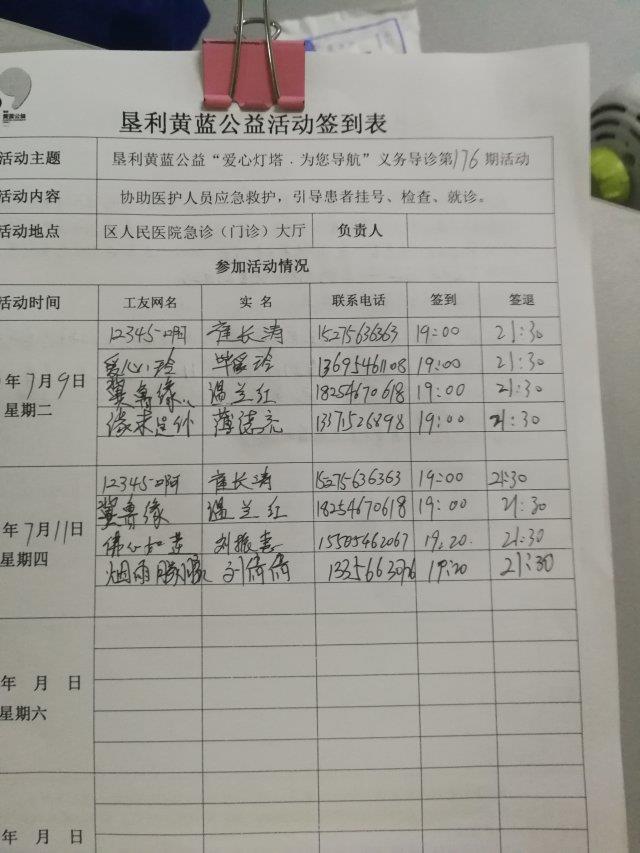 黄蓝公益
垦利黄蓝公益活动签到表
活动主题 垦利黄蓝公益“爱心灯塔·为您导航”义务导诊第176期活动
活动内容 协助医护人员应急救护，引导患者挂号、检查、就诊。
活动地点 区人民医院急诊（门诊）大厅 负责人
参加活动情况
活动时间 工友网名 实 名 联系电话 签到 签退
12345-啊 崔长涛 15275636363 19:00 21:30
爱心玲 毕爱玲 13695461108 19:00 21:30
年7月9日 冀鲁缘 温兰红 18254670618 19:00 21:30
星期二 缘来是你 薄清亮 13371526898 19:00 21:30
12345-啊 崔长涛 15275636363 19:00 21:30
冀鲁缘 温兰红 18254670618 19:00 21:30
年7月11日 佛心如 刘振 15505462067 19:20. 21:30
星期四 烟雨朦胧 刘倩倩 19:20 21:30
年 月 日
星期六
年 月 日